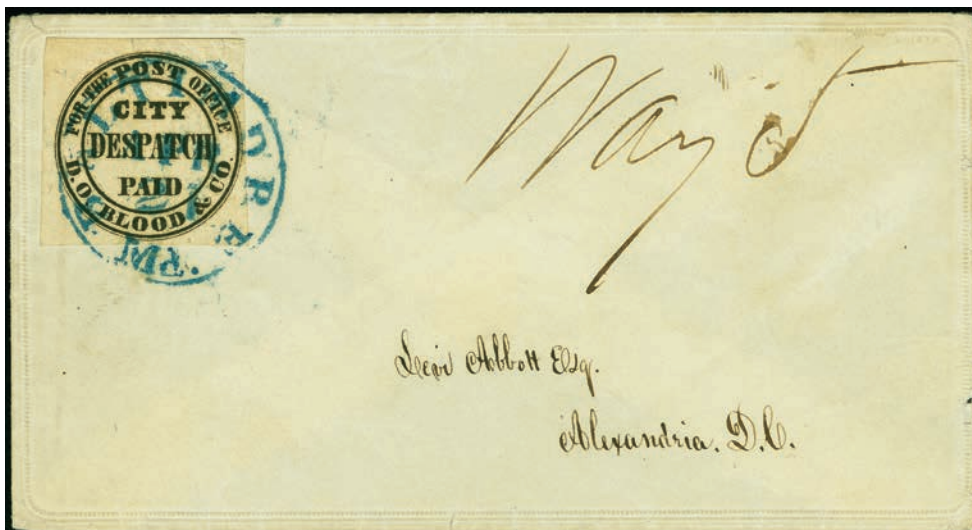 FOR THE POST OFFICE
CITY
DESPATCH
PAID
D.O. BLOOD & CO.
Way 5
Levi Abbott Esq.
Alexandria. D.C.